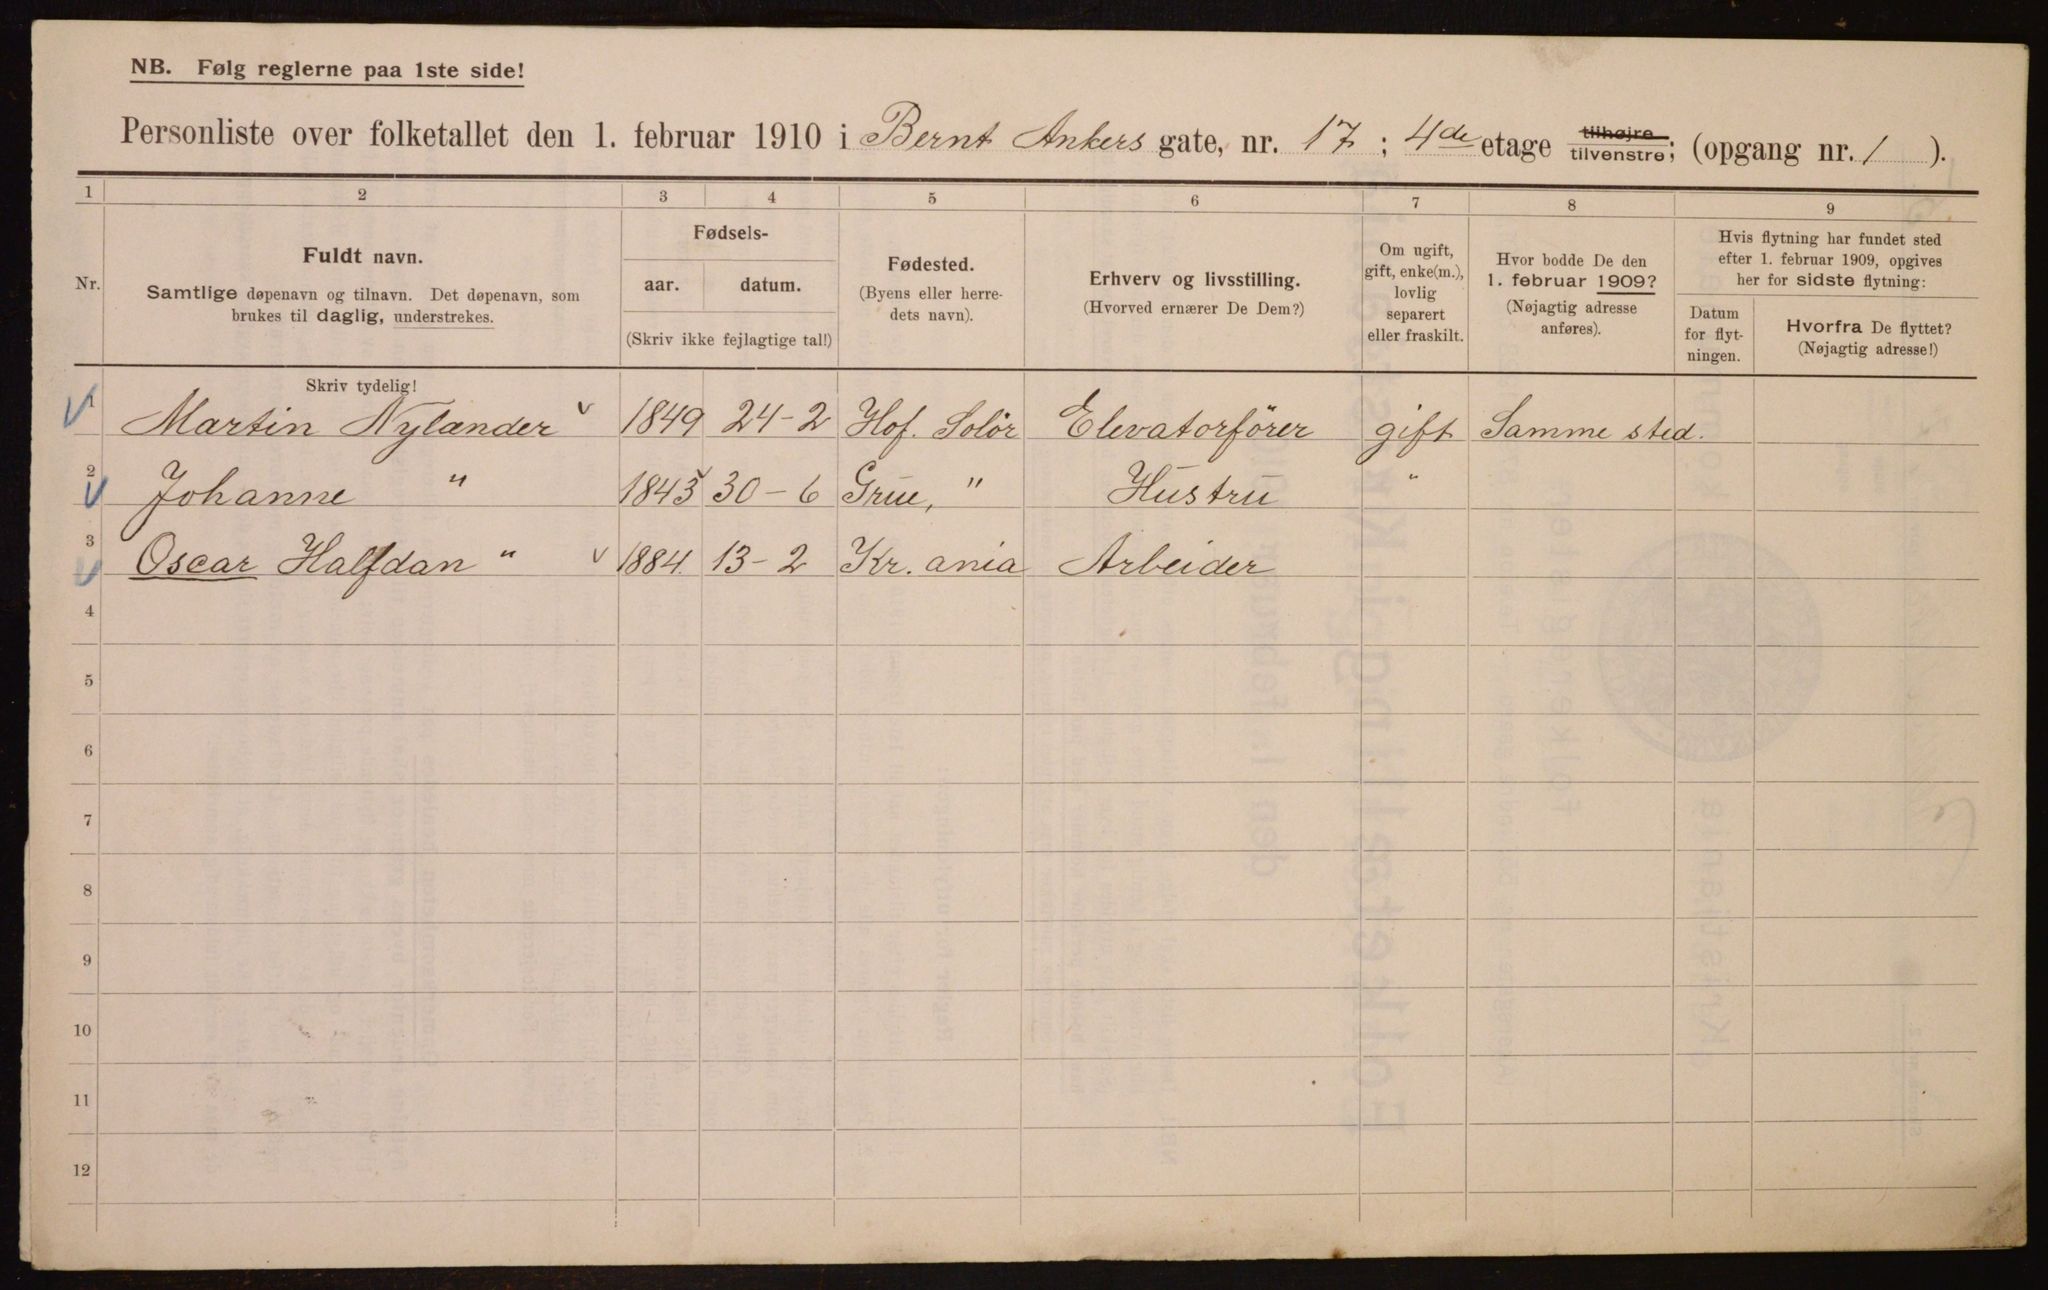 NB. Følg reglerne paa 1ste side!
Personliste over folketallet den 1. februar 1910 i Bernt Ankers gate, nr. 17 ; 4de etage tilhøjre tilvenstre; (opgang nr. 1 ).
1 2 3 4 5 6 7 8 9
Nr.
Fuldt navn.
Samtlige døpenavn og tilnavn. Det døpenavn, som
brukes til daglig, understrekes.
Skriv tydelig!
Fødsels-
aar. datum.
(Skriv ikke fejlagtige tal!)
Fødested.
(Byens eller herre-
dets navn).
Erhverv og livsstilling.
(Hvorved ernærer De Dem?)
Om ugift,
gift, enke(m.),
lovlig
separert
eller fraskilt.
Hvor bodde De den
1. februar 1909?
(Nøjagtig adresse
anføres).
Hvis flytning har fundet sted
efter 1. februar 1909, opgives
her for sidste flytning:
Datum
for flyt-
ningen.
Hvorfra De flyttet?
(Nøjagtig adresse!)
1 Martin Nylander 1849 24-2 Hof. Solör Elevatorförer gift Samme sted.
2 Johanne " 1843 30-6 Grue, " Hustru "
3 Oscar Halfdan " 1884 13-2 Kr. ania Arbeider
4
5
6
7
8
9
10
11
12